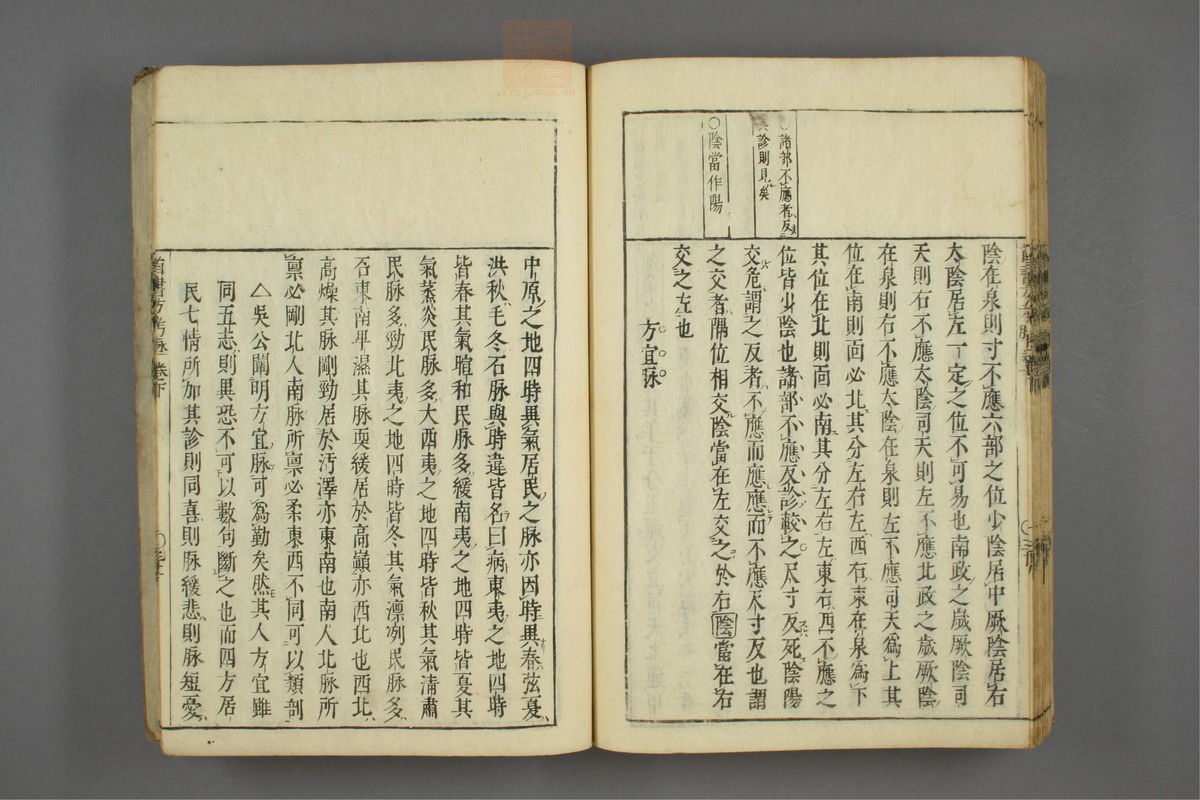 ○諸部不應者反
其診則見矣
○陰當作陽
陰在泉則寸不應六部之位少陰居中厥陰居右
太陰居左一定之位不可易也南政之歲厥陰司
天則右不應太陰司天則左不應北政之歲厥陰
在泉則右不應太陰在泉則左不應司天爲上其
位在南則面必北其分左右左西右東在泉爲下
其位在北則面必南其分左右左東右西不應之
位皆少陰也諸部不應反診較之尺寸反死陰陽
交危謂之反者不應而應應而不應尺寸反也謂
之交者隔位相交陰當在左交之於右陰當在右
交之左也
方宜脉
中原之地四時異氣居民之脉亦因時異春弦夏
洪秋毛冬石脉與時違皆名曰病東夷之地四時
皆春其氣暄和民脉多緩南夷之地四時皆夏其
氣蒸炎民脉多大西夷之地四時皆秋其氣清肅
民脉多勁北夷之地四時皆冬其氣凛冽民脉多
石東南卑濕其脉耎緩居於高巔亦西北也西北
高燥其脉剛勁居於汚澤亦東南也南人北脉所
禀必剛北人南脉所禀必柔東西不同可以類剖
△吳公闡明方宜脉可爲勤矣然其人方宜雖
同五志則異恐不可以數句斷之也而四方居
民七情所加其診則同喜則脉緩悲則脉短憂